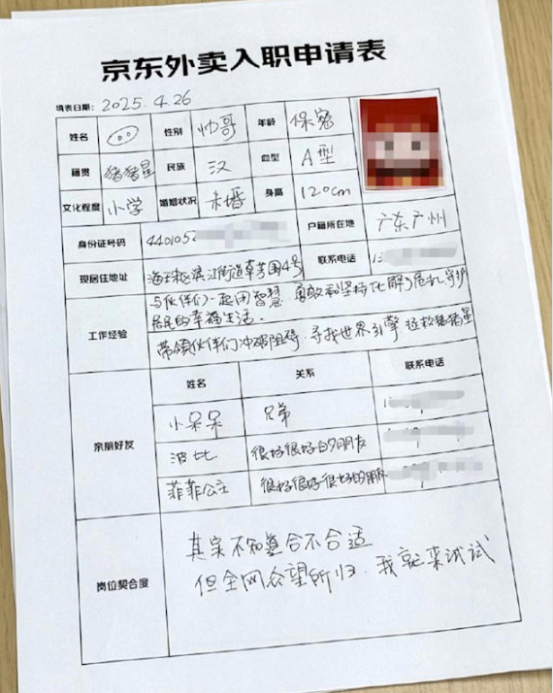 京东外卖入职申请表
填表日期: 2025.4.26
姓名 性别 帅哥 年龄 保密
籍贯 猪猪星 民族 汉 血型 A型
文化程度 小学 婚姻状况 未婚 身高 120cm
身份证号码 440105 户籍所在地 广东广州
现居住地址 海珠区滨江街道草芳围4号 联系电话 1
工作经验
与伙伴们一起用智慧、勇敢和坚持化解了危机,守护
居民的幸福生活。
带领伙伴们冲破阻碍,寻找世界引擎 拯救猪猪星
亲朋好友
姓名 关系 联系电话
小呆呆 兄弟
波比 很好很好的朋友
菲菲公主 很好很好很好的朋
岗位契合度
其实不知道合不合适
但全网众望所归,我就来试试